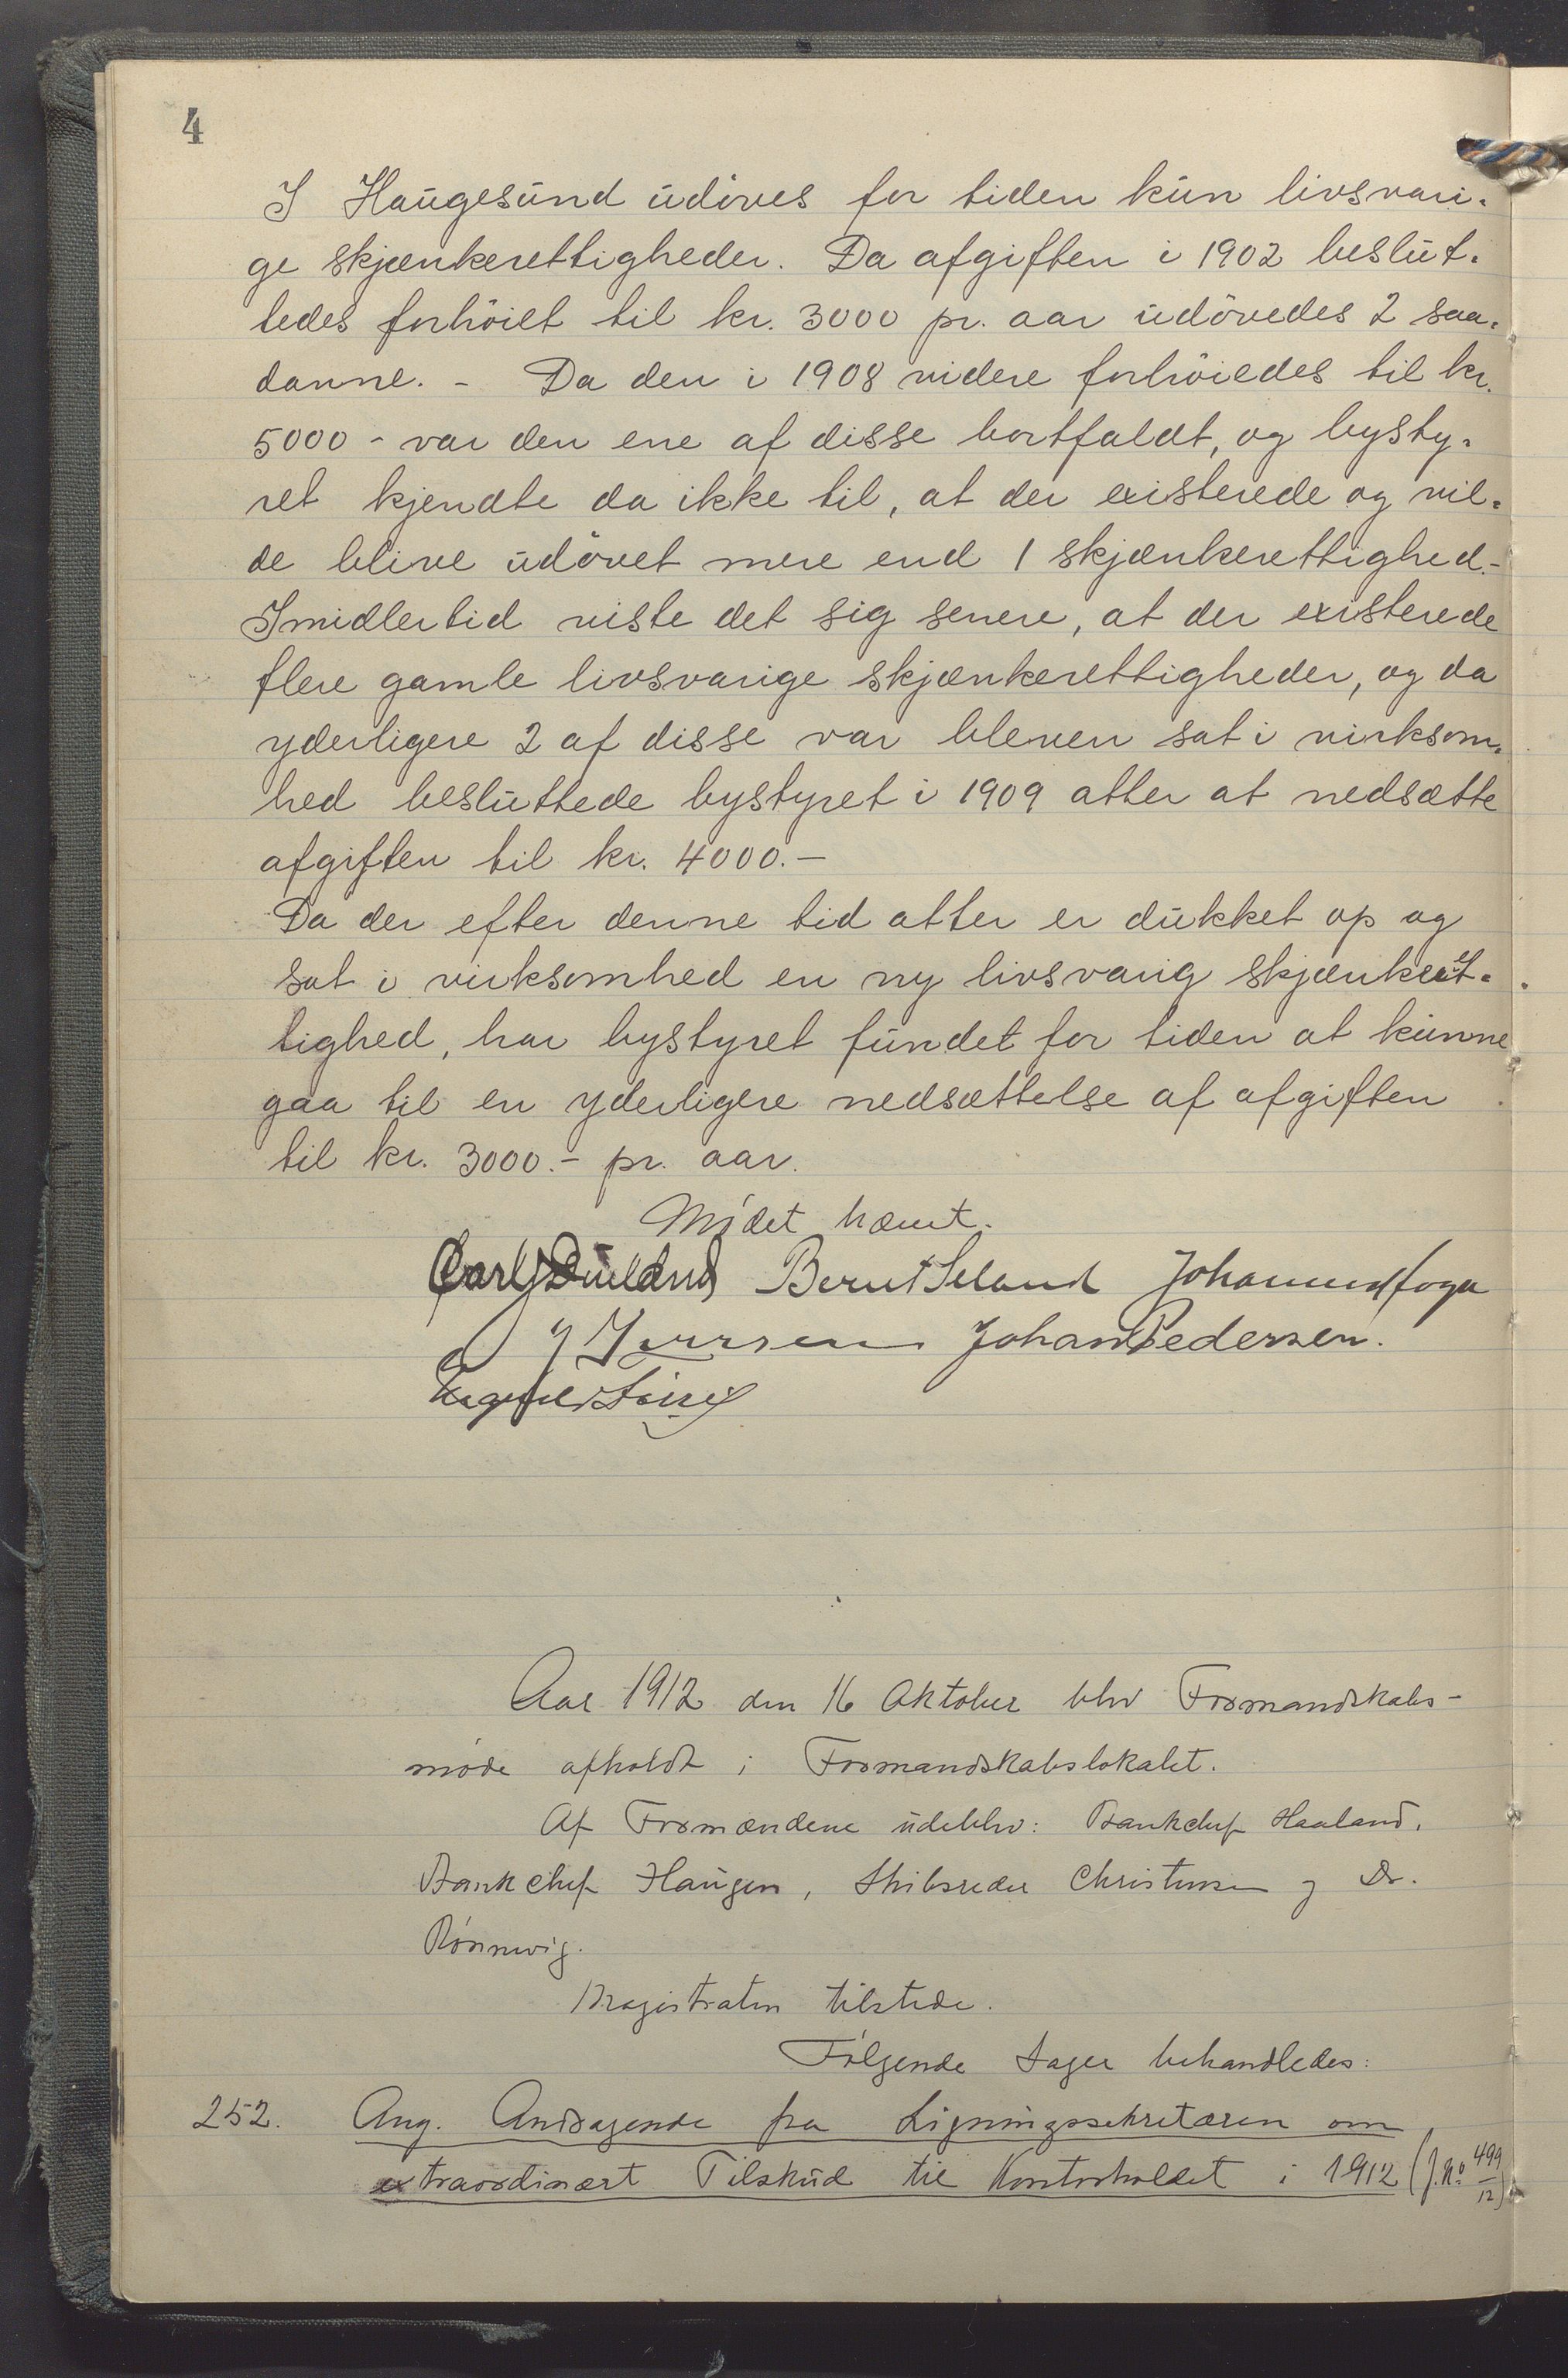 4
I Haugesund udöves for tiden kun livsvari-
ge skjænkerettigheder. Da afgiften i 1902 beslut-
tedes forhöiet til kr. 3000 pr. aar udövedes 2 saa-
danne. - Da den i 1908 videre forhöiedes til kr.
5000 - var den ene af disse bortfaldt, og bysty-
ret kjendte da ikke til, at der existerede og vil-
de blive udövet mere end 1 skjænkerettighed.-
Imidlertid viste det sig senere, at der existerede
flere gamle livsvarige skjænkerettigheder, og da
yderligere 2 af disse var bleven sat i virksom-
hed besluttede bystyret i 1909 atter at nedsætte
afgiften til kr. 4000.-
Da der efter denne tid atter er dukket op og
sat i virksomhed en ny livsvarig skjænkeret-
tighed, har bystyret fundet for tiden at kunne
gaa til en yderligere nedsættelse af afgiften
til kr. 3000.- pr. aar.
Mödet hævet.
Bernt Seland
Johan Pedersen.
Aar 1912 den 16 Oktober blev Formandskabs-
möde afholdt i Formandskabslokalet.
Af Formændene udeblev: Bankchef Haaland,
Bankchef Haugen, Skibsreder Christensen og Dr.
Rönnevig.
Magistraten tilstede.
Fölgende Sager behandledes:
252. Ang. Andragende fra Ligningssekretæren om
extraordinært Tilskud til Kontorholdet i 1912 (J.No 499/12)